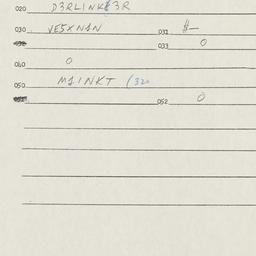 020 D3RLINK83R
030 VE5XN1N 031 $—
033 0
040 0
050 M1INKT (320
052 0